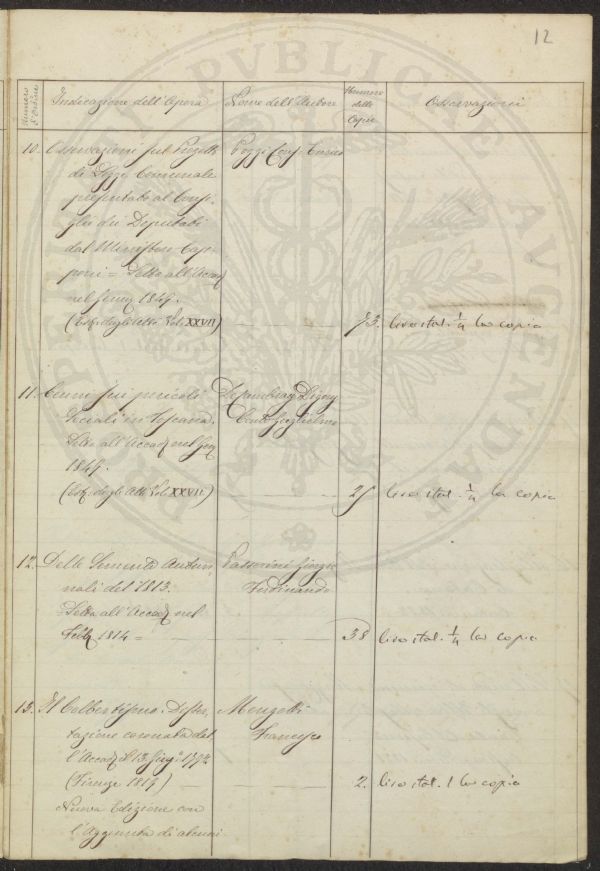 12
PUBLICAE
AUGENDAE
PROSPERITATI
Numero d'Ordine
Indicazione dell'Opera
Nome dell'Autore
Numero delle Copie
Osservazioni
10. Osservazioni sul Progetto
di Legge Comunale
presentato al Consi-
glio dei Deputati
dal Ministro Cap-
poni = Letta all'Accad.
nel 1849.
(Estr. degli Atti Vol. XXVII)
Poggi Enrico
73. lira ital. ¼ la copia
11. Cenni sui pericoli
Sociali in Toscana.
Letta all'Accad. nel
1849.
(Estr. degli Atti Vol. XXVII.)
Decambray Digny
Conte Guglielmo
lira ital. ¼ la copia
12. Delle Sementi Autun-
nali del 1813.
Letta all'Accad. nel
1814 =
Passerini
Ferdinando
38 lira ital. ¼ la copia
13. Il Colbertismo. Disser-
tazione coronata dal
l'Accad.
(Firenze
Nuova Edizione con
l'Aggiunta di alcuni
Mengotti
Francesco
2. lira ital. 1 la copia